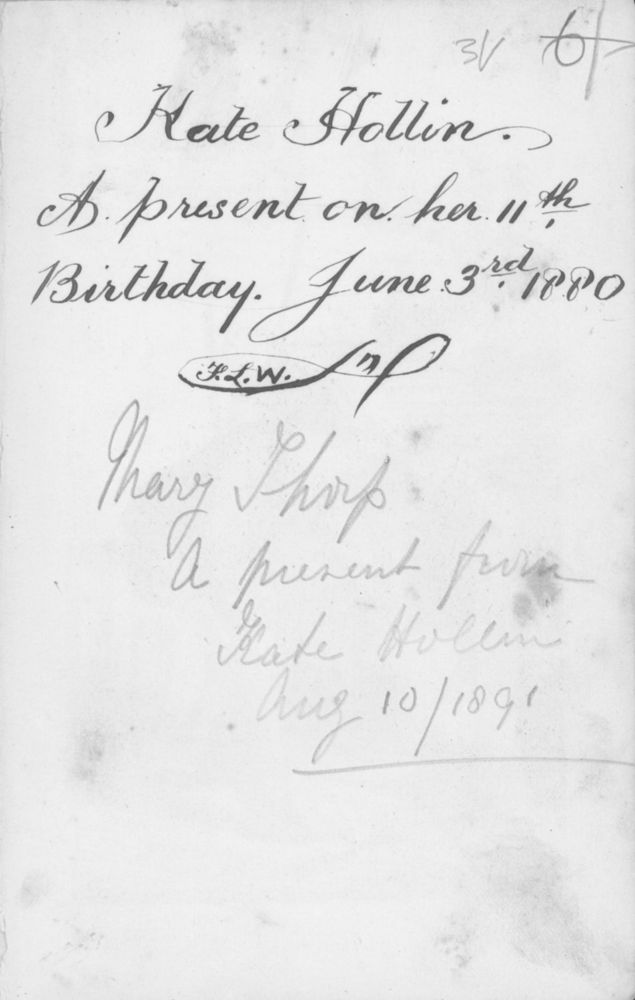 3/ 6/-
Kate Hollin.
A present on her 11th
Birthday. June 3rd, 1880
F.L.W.
Mary Thorp
A present from
Kate Hollin
Aug 10/1891